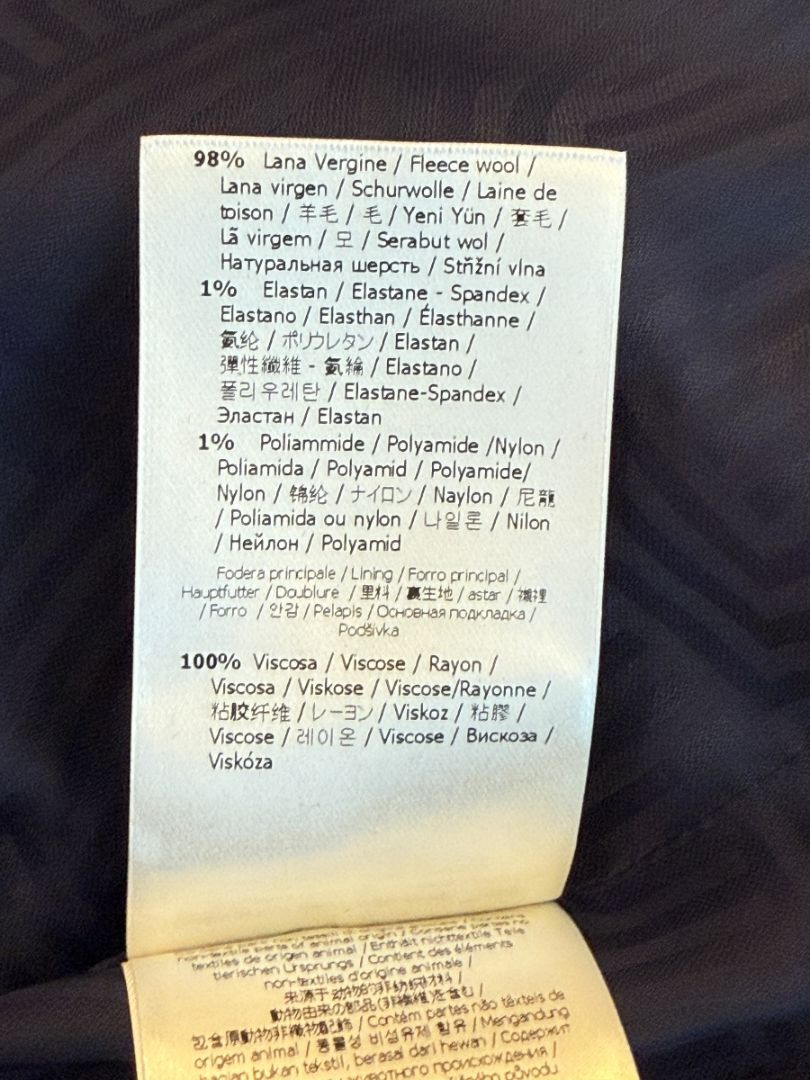 98% Lana Vergine / Fleece wool /
Lana virgen / Schurwolle / Laine de
toison / 羊毛 / 毛 / Yeni Yün / 套毛 /
Lã virgem / 모 / Serabut wol /
Натуральная шерсть / Střižní vlna
1% Elastan / Elastane - Spandex /
Elastano / Elasthan / Élasthanne /
氨纶 / ポリウレタン / Elastan /
彈性纖維 - 氨綸 / Elastano /
폴리우레탄 / Elastane-Spandex /
Эластан / Elastan
1% Poliammide / Polyamide /Nylon /
Poliamida / Polyamid / Polyamide/
Nylon / 锦纶 / ナイロン / Naylon / 尼龍
/ Poliamida ou nylon / 나일론 / Nilon
/ Нейлон / Polyamid
Fodera principale / Lining / Forro principal /
Hauptfutter / Doublure / 里料 / 裏生地 / astar / 襯裡
/ Forro / 안감 / Pelapis / Основная подкладка /
Podšívka
100% Viscosa / Viscose / Rayon /
Viscosa / Viskose / Viscose/Rayonne /
粘胶纤维 / レーヨン / Viskoz / 粘膠 /
Viscose / 레이온 / Viscose / Вискоза /
Viskóza
non-textile parts of animal origin / Contiene partes no
textiles de origen animal / Enthält nichttextile Teile
tierischen Ursprungs / Contient des éléments
non-textiles d'origine animale /
来源于动物的非纺织材料 /
動物由来の部品(非繊維)を含む /
包含原動物非織物配飾 / Contém partes não têxteis de
origem animal / 동물성 비섬유제 함유 / Mengandung
bagian bukan tekstil, berasal dari hewan / Содержит
животного происхождения /
původu